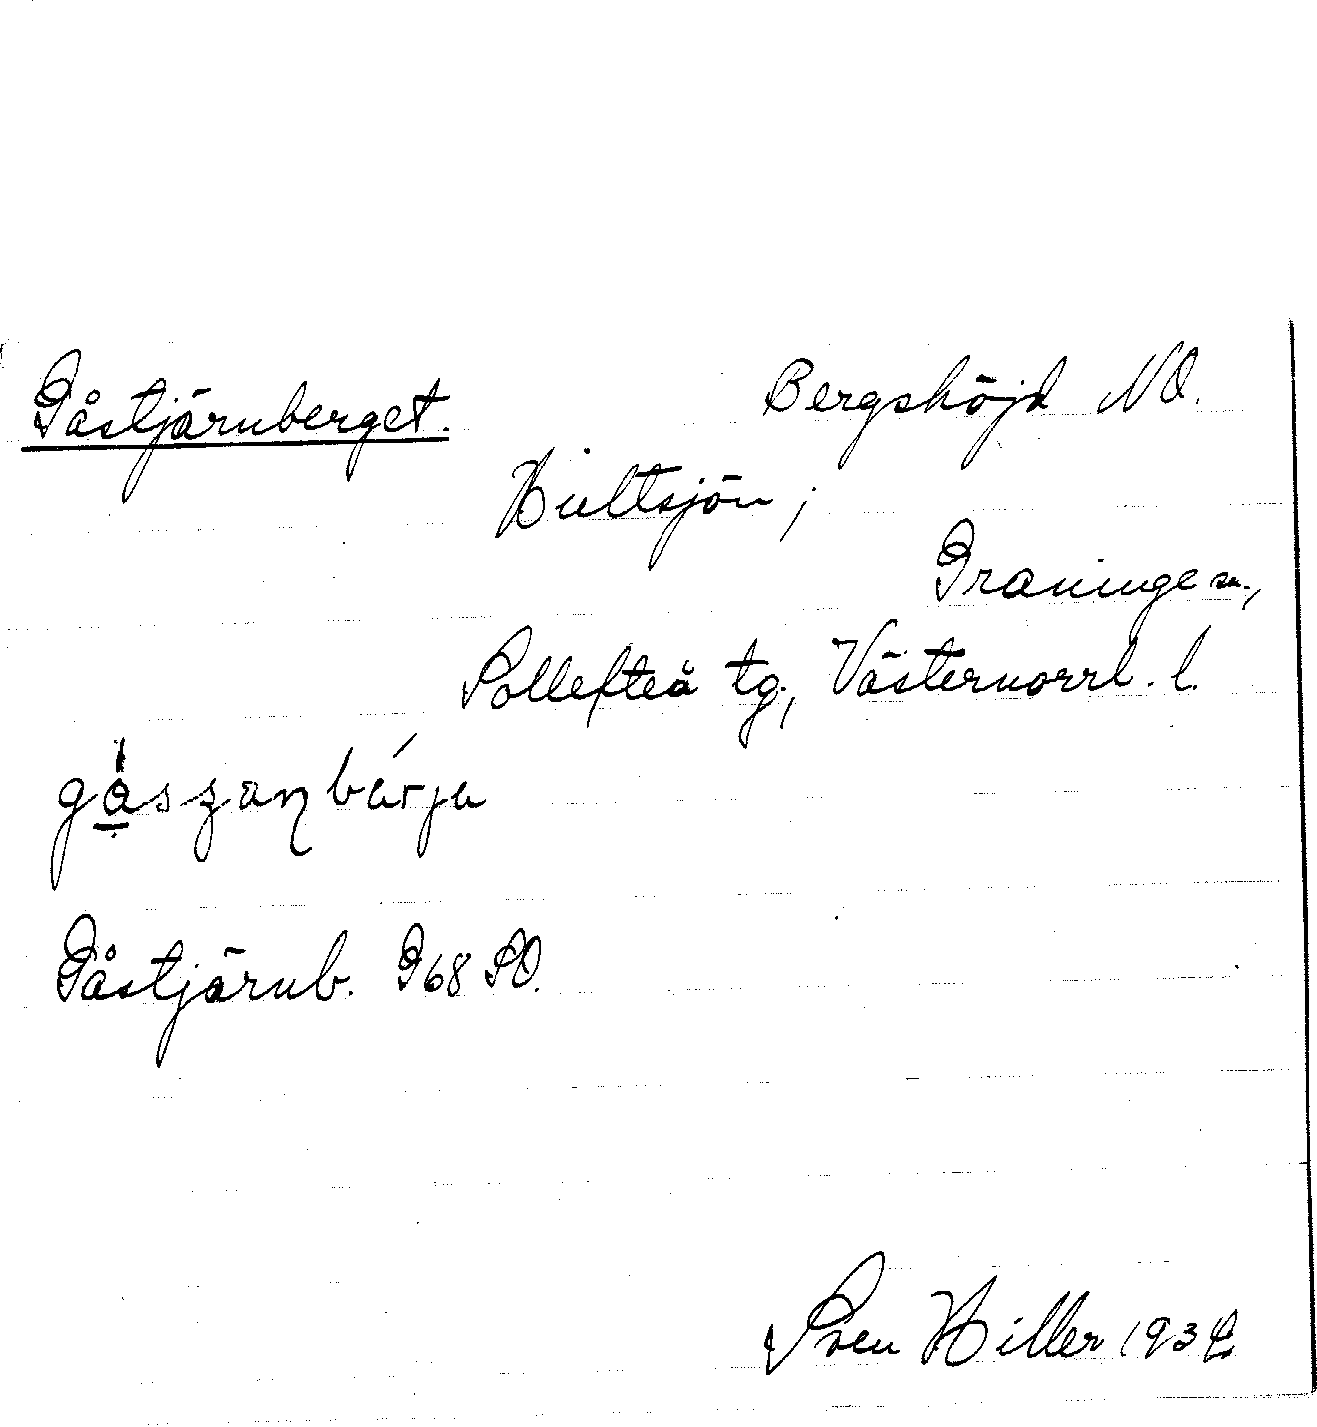 Gåstjärnberget. Bergshöjd NO.
Hultsjön;
Graninge sn.,
Sollefteå tg., Västernorrl. l.
Gåstjärnb. G68 SO.
Sven Hiller 1932